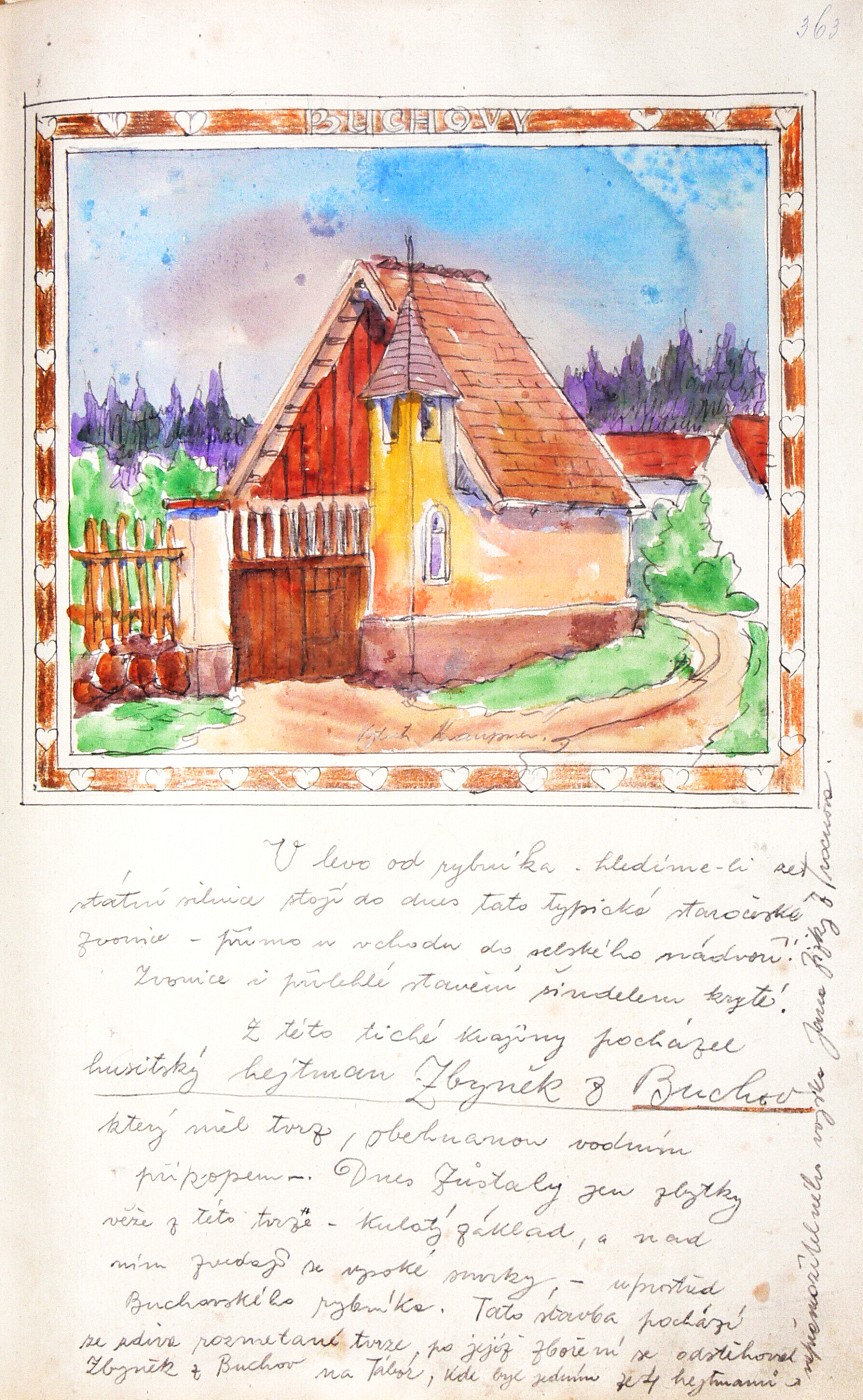 363
BUCHOVY
V levo od rybníka - hledíme-li ze
státní silnice stojí do dnes tato typická staročeská
zvonice - přímo u vchodu do selského nádvoří!
Zvonice i přilehlé stavení šindelem kryté!
Z této tiché krajiny pocházel
husitský hejtman Zbyněk z Buchov
který měl tvrz, obehnanou vodním
příkopem -. Dnes zůstaly jen zbytky
věže z této tvrze - kulatý základ, a nad
ním zvedají se vysoké smrky, - uprostřed
Buchovského rybníka. Tato stavba pochází
ze zdiva rozmetané tvrze, po jejíž zboření se odstěhoval
Zbyněk z Buchov na Tábor, kde byl jedním ze 4 hejtmanů
nepřemožitelného vojska Jana Žižky z Trocnova.